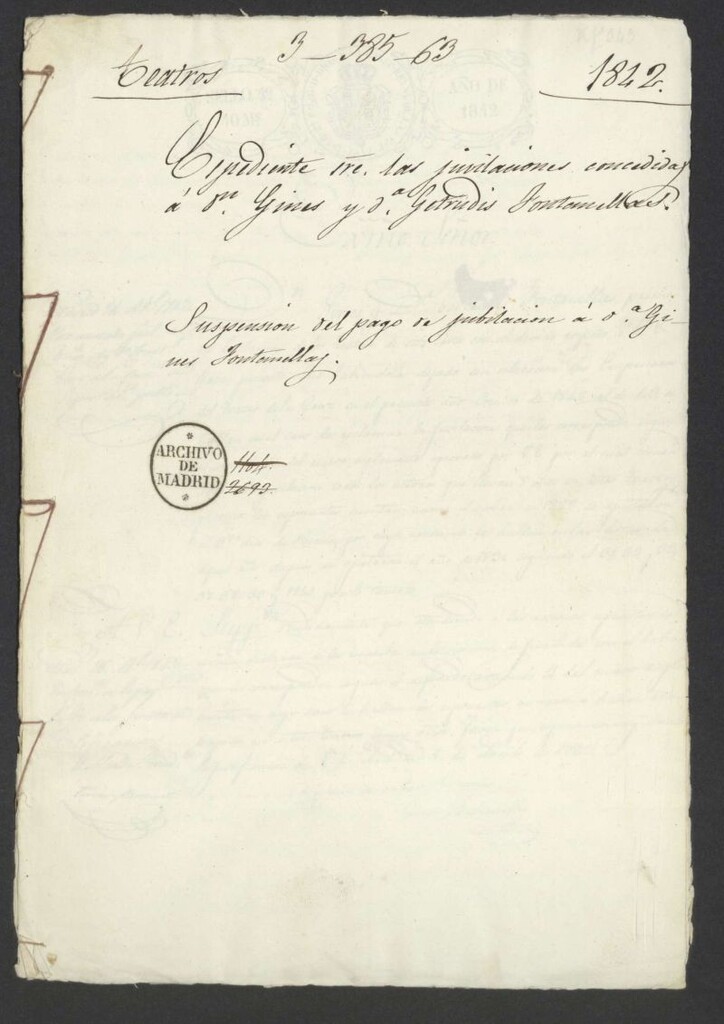 3-385-63
Teatros
1842.
Expediente sre. las juvilaciones concedidas
á Dn. Gines y d.ª Getrudis Fontanellas.
Suspension del pago de jubilacion á d.ª Gi-
nes Fontanellas.
ARCHIVO
DE
MADRID
1164
2693